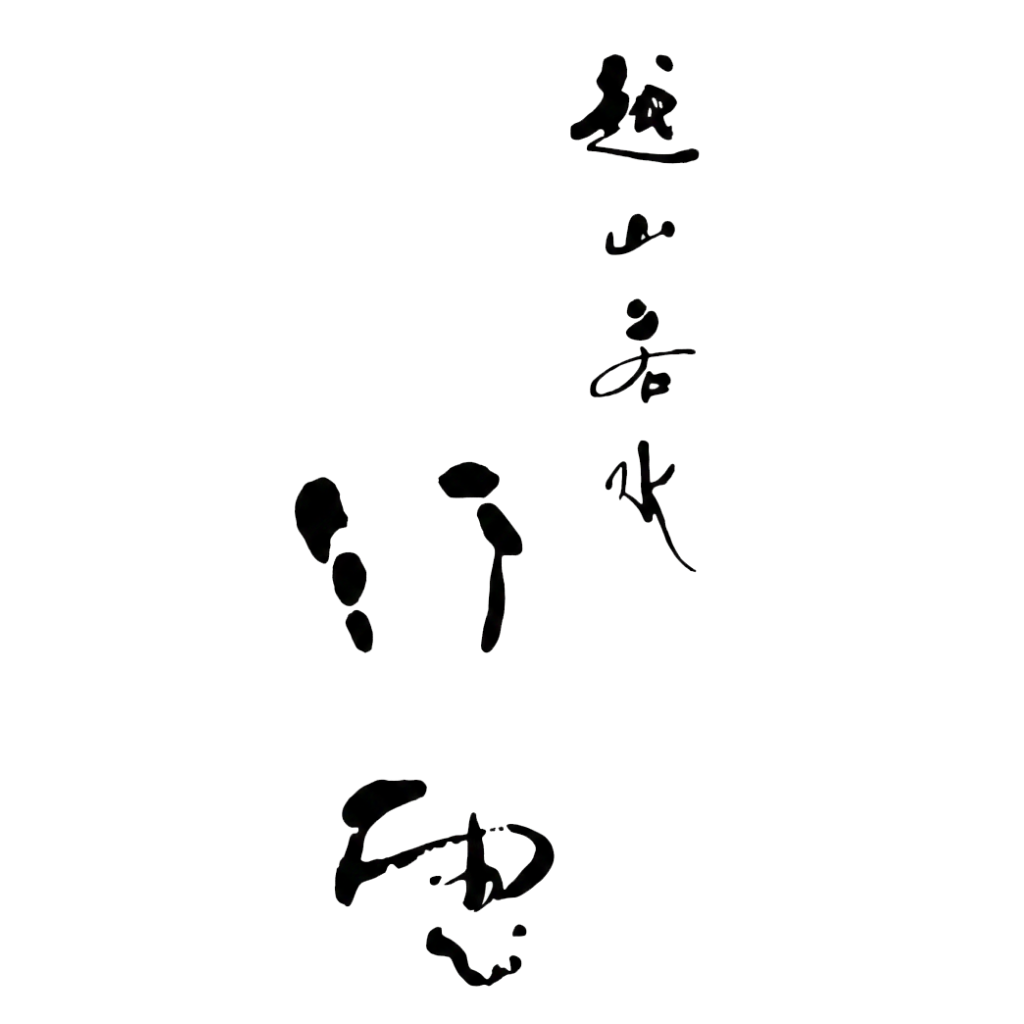 越山若水
行